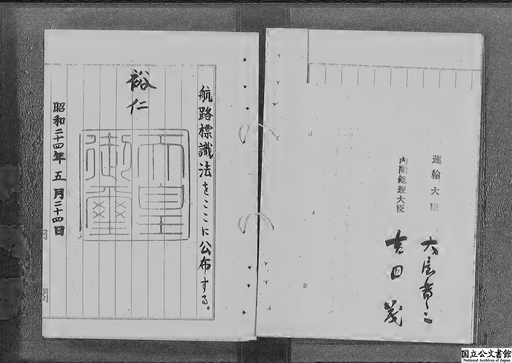 航路標識法をここに公布する。
裕仁
天皇
御璽
昭和二十四年五月二十四日
運輸大臣
大屋晋三
内閣総理大臣
吉田茂
国立公文書館
National Archives of Japan